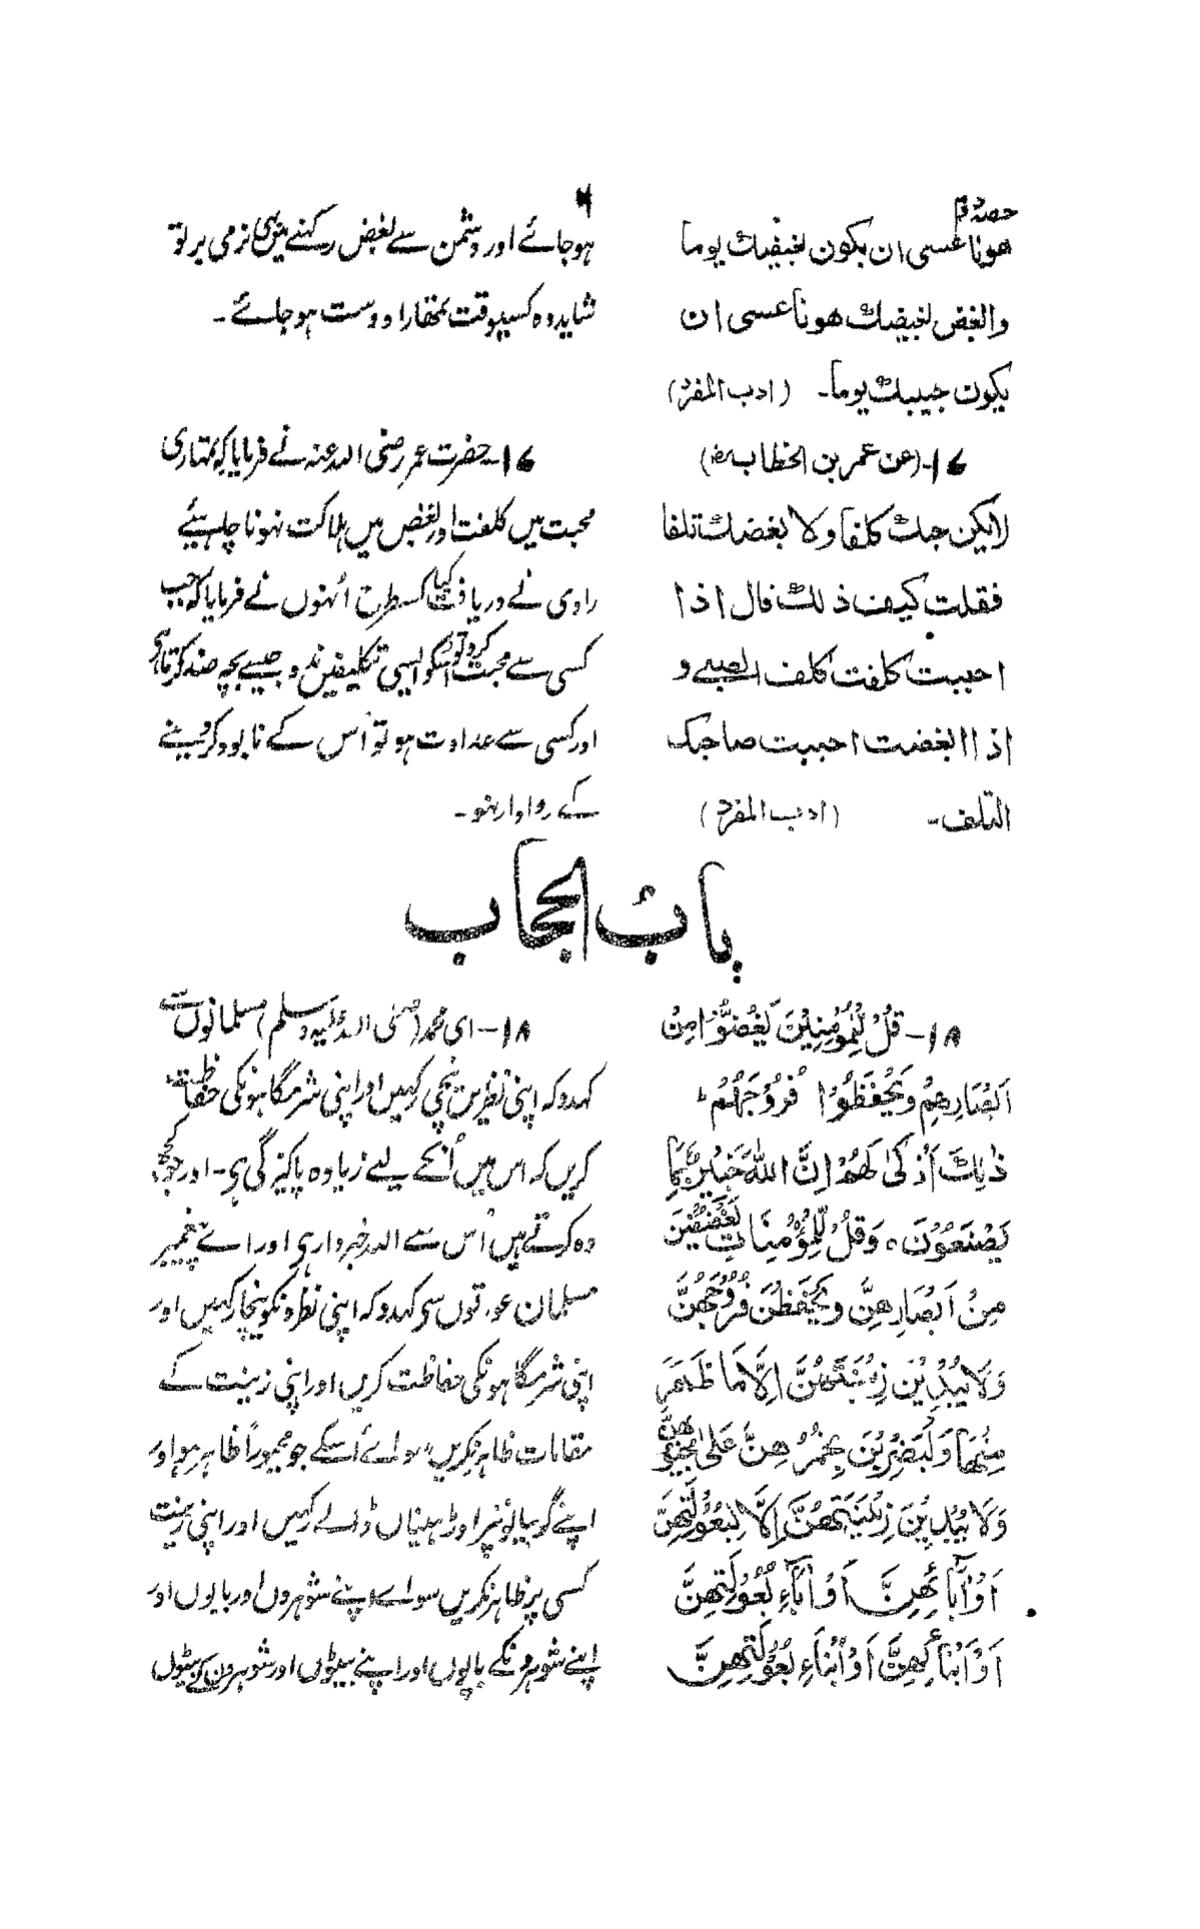 حصہ دوم
۶
ھونا عسی ان یکون بغیضک یوما
والغض بغیضک ھونا عسی ان
یکون حبیبک یوما۔ (ادب المفرد)
۱۶۔(عن عمر بن الخطاب رض)
لایکن حبک کلفا ولا بغضک تلفا
فقلت کیف ذلک قال اذا
احببت کلفت کلف الصبے و
اذا ابغضت احببت صاحبک
التلف۔ (ادب المفرد)
ہوجائے اور دشمن سے بغض رکھنے میں بھی نرمی برتو
شاید وہ کسیوقت تمھارا دوست ہوجائے۔
۱۶۔حضرت عمر رضی اللہ عنہ نے فرمایا کہ تمہاری
محبت میں کلفت اور بغض میں ہلاکت نہونا چاہیئے
راوی نے دریافت کیا کسطرح اُنہوں نے فرمایا کہ جب
کسی سے محبت کرو تو اسکو ایسی تکلیفیں ندو جیسے بچہ ضد کرتا ہی
اور کسی سے عداوت ہو تو اُس کے نابود کر دینے
کے روادار نہو۔
بابُ الحجاب
۱۸۔قُلْ لِّلْمُؤْمِنِیْنَ یَغُضُّوْا مِنْ
اَبْصَارِهِمْ وَیَحْفَظُوْا فُرُوْجَهُمْ ط
ذٰلِکَ اَزْکٰی لَهُمْ اِنَّ اللّٰهَ خَبِیْرٌۢ بِمَا
یَصْنَعُوْنَ ہ وَقُلْ لِّلْمُؤْمِنَاتِ یَغْضُضْنَ
مِنْ اَبْصَارِهِنَّ وَیَحْفَظْنَ فُرُوْجَهُنَّ
وَلَا یُبْدِیْنَ زِیْنَتَهُنَّ اِلَّا مَا ظَهَرَ
مِنْهَا وَلْیَضْرِبْنَ بِخُمُرِهِنَّ عَلٰی جُیُوْبِهِنَّ
وَلَا یُبْدِیْنَ زِیْنَتَهُنَّ اِلَّا لِبُعُوْلَتِهِنَّ
اَوْ اٰبَآئِهِنَّ اَوْ اٰبَآءِ بُعُوْلَتِهِنَّ
اَوْ اَبْنَآئِهِنَّ اَوْ اَبْنَآءِ بُعُوْلَتِهِنَّ
۱۸۔ای محمد (صلی اللہ علیہ وسلم) مسلمانوں سے
کہدو کہ اپنی نظریں نیچی رکھیں اور اپنی شرمگاہونکی حفاظت
کریں کہ اس میں اُنکے لیے زیادہ پاکیزگی ہی۔ اور جو کچھ
وہ کرتے ہیں اُس سے اللہ خبردار ہی اور اے پیغمبر
مسلمان عورتوں سی کہدو کہ اپنی نظرونکو نیچا رکھیں اور
اپنی شرمگاہونکی حفاظت کریں اور اپنی زینت کے
مقامات ظاہر نکریں سوائے اسکے جو مجبوراً ظاہر ہو اور
اپنے گریبانونپر اوڑہنیاں ڈالے رکھیں اور اپنی زینت
کسی پر ظاہر نکریں سواے اپنے شوہروں اور باپوں اور
اپنے شوہرونکے باپوں اور اپنے بیٹوں اور شوہروں کے بیٹوں